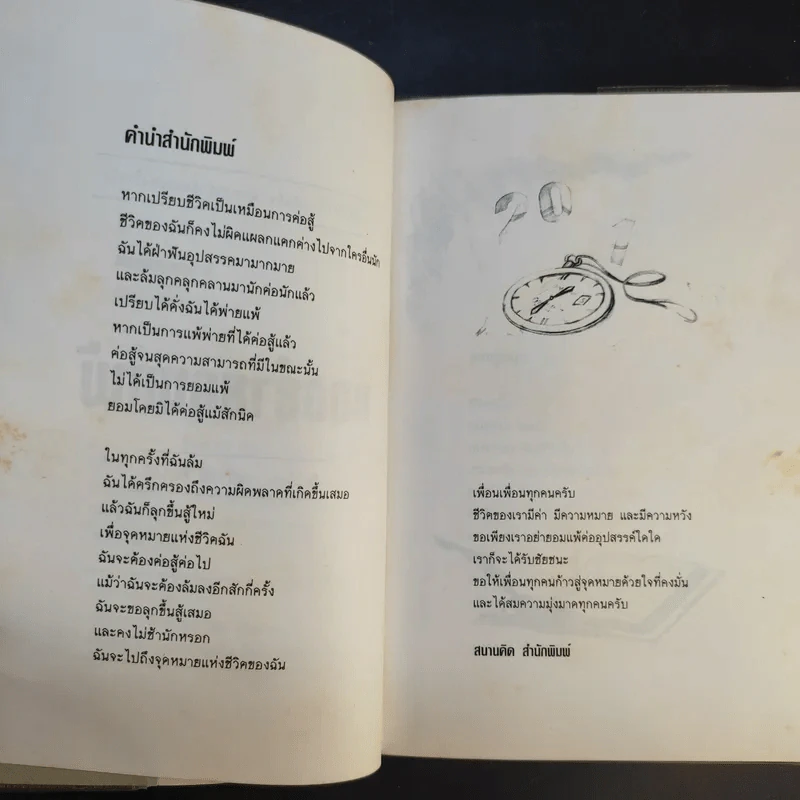 คำนำสำนักพิมพ์
หากเปรียบชีวิตเป็นเหมือนการต่อสู้
ชีวิตของฉันก็คงไม่ผิดแผลกแตกต่างไปจากใครอื่นนัก
ฉันได้ฝ่าฟันอุปสรรคมามากมาย
และล้มลุกคลุกคลานมานักต่อนักแล้ว
เปรียบได้ดั่งฉันได้พ่ายแพ้
หากเป็นการแพ้พ่ายที่ได้ต่อสู้แล้ว
ต่อสู้จนสุดความสามารถที่มีในขณะนั้น
ไม่ได้เป็นการยอมแพ้
ยอมโดยมิได้ต่อสู้แม้สักนิด
ในทุกครั้งที่ฉันล้ม
ฉันได้ตรึกตรองถึงความผิดพลาดที่เกิดขึ้นเสมอ
แล้วฉันก็ลุกขึ้นสู้ใหม่
เพื่อจุดหมายแห่งชีวิตฉัน
ฉันจะต้องต่อสู้ต่อไป
แม้ว่าฉันจะต้องล้มลงอีกสักกี่ครั้ง
ฉันจะขอลุกขึ้นสู้เสมอ
และคงไม่ช้านักหรอก
ฉันจะไปถึงจุดหมายแห่งชีวิตของฉัน
เพื่อนเพื่อนทุกคนครับ
ชีวิตของเรามีค่า มีความหมาย และมีความหวัง
ขอเพียงเราอย่ายอมแพ้ต่ออุปสรรคใดใด
เราก็จะได้รับชัยชนะ
ขอให้เพื่อนทุกคนก้าวสู่จุดหมายด้วยใจที่คงมั่น
และได้สมความมุ่งมาดทุกคนครับ
สบานคิด สำนักพิมพ์